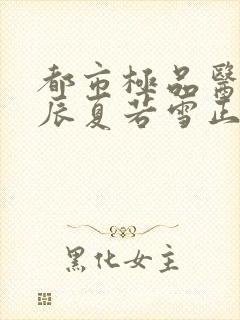 都市極品醫
辰夏若雪正
黑化女主